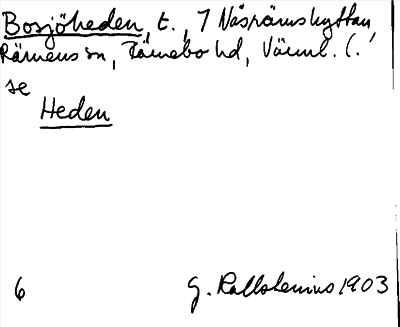 Bosjöheden, t., 7 Näsrämshyttan,
Rämens sn, Färnebo hd, Värml. (.
se
Heden
6 G. Kallstenius 1903